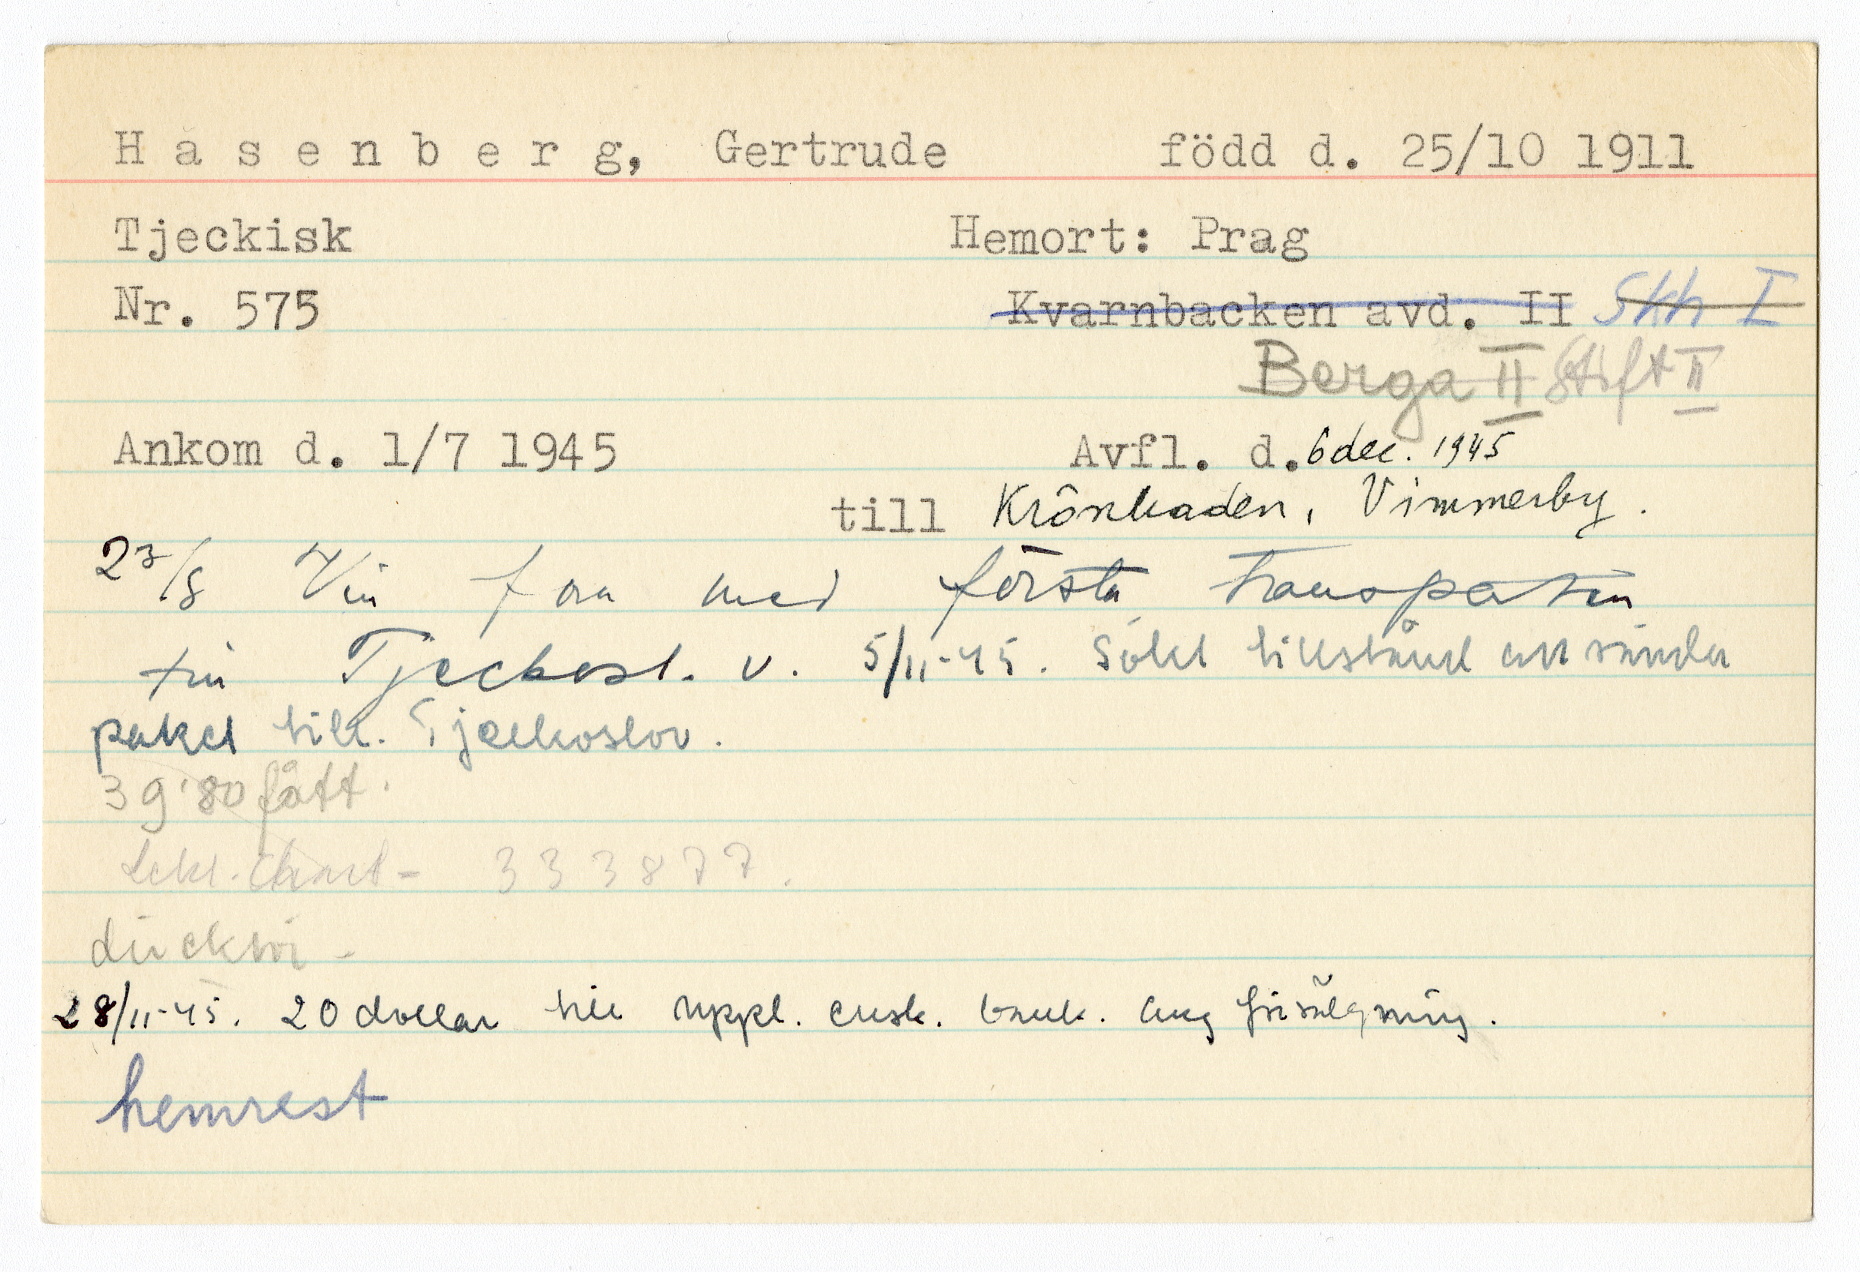 Hasenberg, Gertrude född d. 25/10 1911
Tjeckisk Hemort: Prag
Nr. 575 Kvarnbacken avd. II Skh I
Berga II Stift II
Ankom d. 1/7 1945 Avfl. d. 6 dec. 1945
till Krönbaden, Vimmerby.
23/8 Vill fara med första transporten
till Tjeckosl. v. 5/11-45. Sökt tillstånd att sända
paket till Tjeckoslov.
39'80 fått.
333877.
28/11-45. 20 dollar till uppl. ensk. bank. ang försäljning.
hemrest